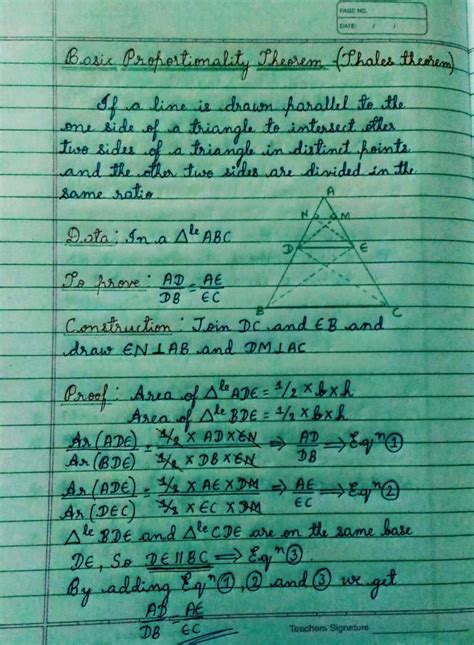 PAGE NO.
DATE: / /
Basic Proportionality Theorem - (Thales theorem)
If a line is drawn parallel to the
one side of a triangle to intersect other
two sides of a triangle in distinct points
and the other two sides are divided in the
same ratio
A
N M
Data: In a Δˡᵉ ABC
D E
To prove: AD/DB = AE/EC
B C
Construction: Join DC and EB and
draw EN⊥AB and DM⊥AC
Proof: Area of Δˡᵉ ADE = 1/2 × b × h
Area of Δˡᵉ BDE = 1/2 × b × h
Ar(ADE)/Ar(BDE) = 1/2 × AD × EN / 1/2 × DB × EN ⇒ AD/DB ⇒ Eqⁿ ①
Ar(ADE)/Ar(DEC) = 1/2 × AE × DM / 1/2 × EC × DM ⇒ AE/EC ⇒ Eqⁿ ②
Δˡᵉ BDE and Δˡᵉ CDE are on the same base
DE, So DE||BC ⇒ Eqⁿ ③
By adding Eqⁿ ①, ② and ③ we get
AD/DB = AE/EC
Teachers Signature